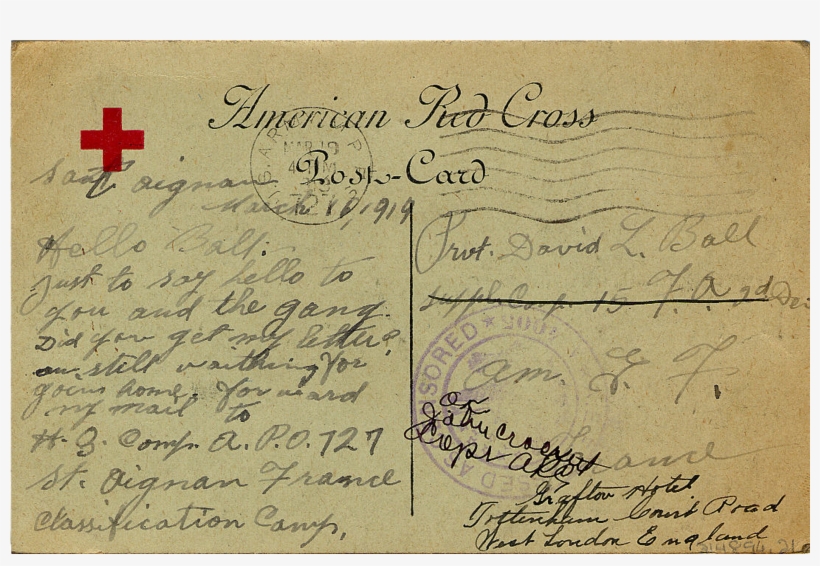 American Red Cross
Post-Card
MAR 10
Saint aignan
March 10, 1919
Hello Ball:
Just to say hello to
you and the gang.
Did you get my letter,
am still waithing for
goin home. forward
my mail to
H.Q. Comp. A.P.O. 727
St. Aignan France
Classification Camp,
Pvt. David L. Ball
Suppl. Comp. 15 F.A. 2d Div
Am. E. F.
France
Grafton Hotel
Tottenham Court Road
West London England